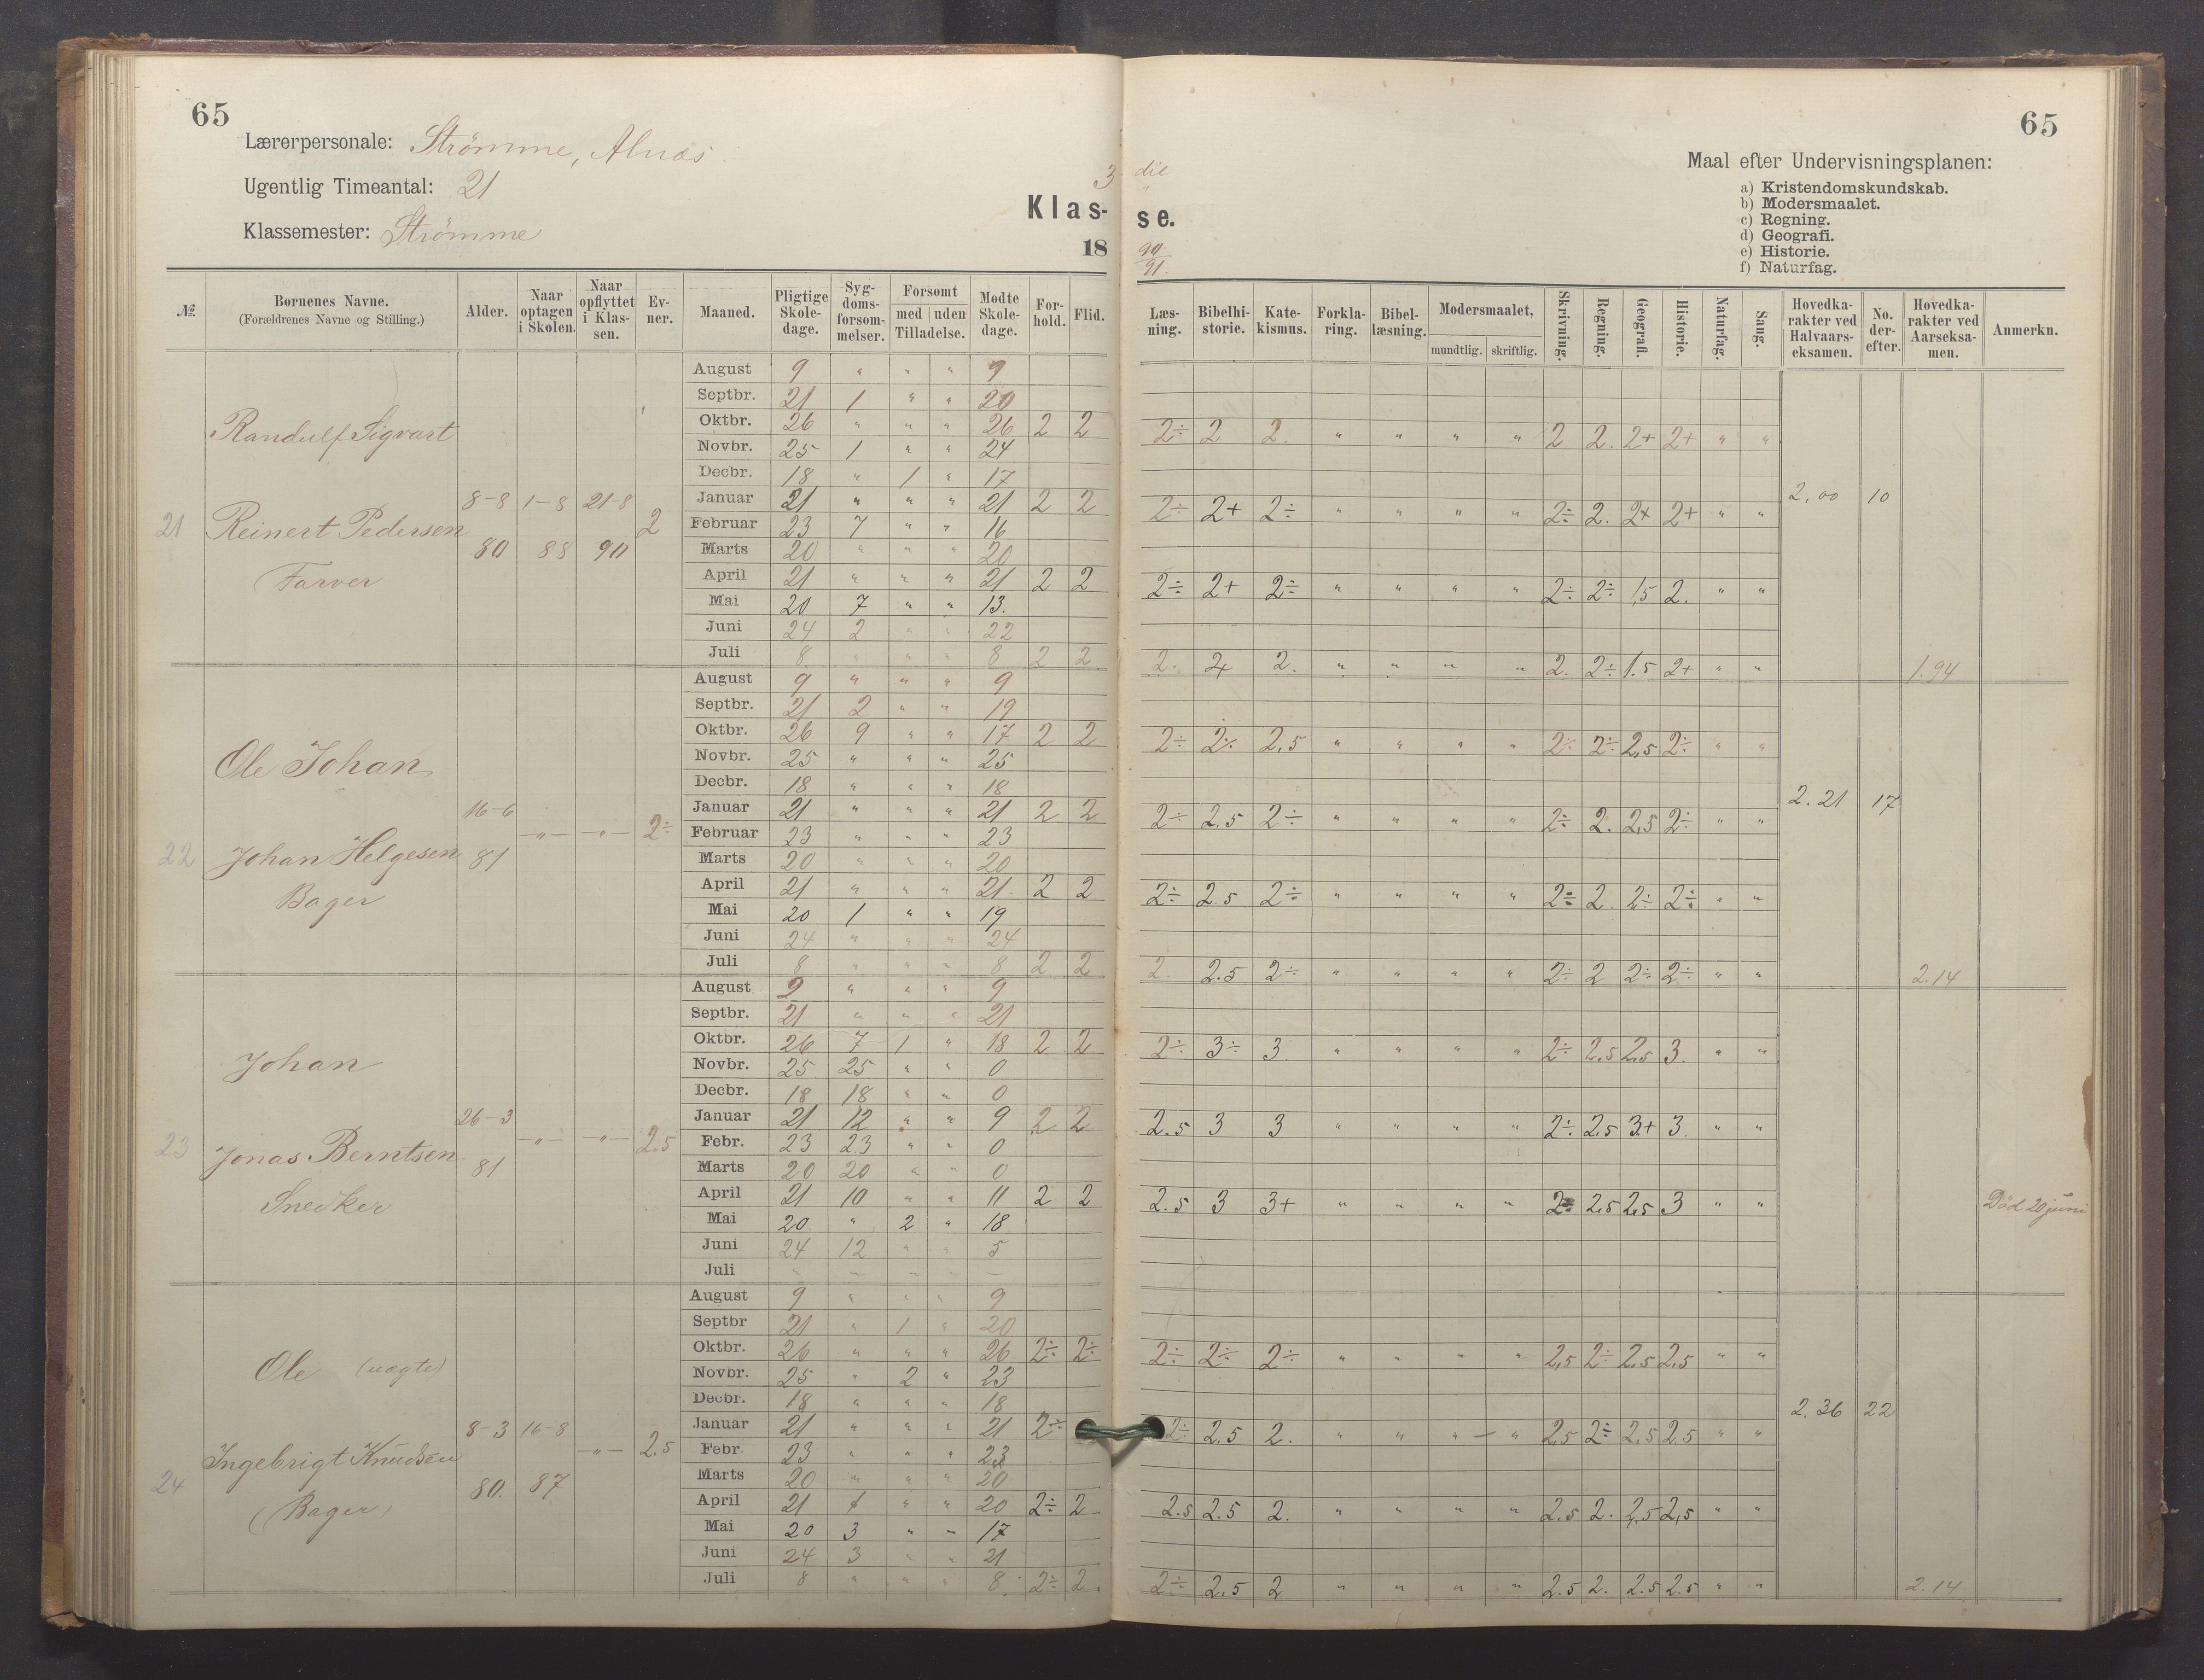 65
Lærerpersonale: Strömme, Alnæs.
Ugentlig Timeantal: 21
Klassemester: Strömme
3 die
Klas- se.
18 90/91.
65
Maal efter Undervisningsplanen:
a) Kristendomskundskab.
b) Modersmaalet.
c) Regning.
d) Geografi.
e) Historie.
f) Naturfag.
№ Børnenes Navne. (Forældrenes Navne og Stilling.) Alder. Naar optagen i Skolen. Naar opflyttet i Klassen. Evner. Maaned. Pligtige Skoledage. Sygdomsforsommelser. Forsomt med uden Tilladelse. Mødte Skoledage. Forhold. Flid.
Læsning. Bibelhistorie. Katekismus. Forklaring. Bibellæsning. Modersmaalet, mundtlig. skriftlig. Skrivning. Regning. Geografi. Historie. Naturfag. Sang. Hovedkarakter ved Halvaarseksamen. No. derefter. Hovedkarakter ved Aarseksamen. Anmerkn.
21 Randulf Sigvart
Reinert Pedersen
Farver
8-8 80 1-8 88 21-8 90 2
August 9 " " " 9
Septbr. 21 1 " " 20
Oktbr. 26 " " " 26 2 2 2÷ 2 2. " " " " 2 2. 2+ 2+ " "
Novbr. 25 1 " " 24
Decbr. 18 " 1 " 17
Januar 21 " " " 21 2 2 2÷ 2+ 2÷ " " " " 2÷ 2. 2+ 2+ " " 2,00 10
Februar 23 7 " " 16
Marts 20 " " " 20
April 21 " " " 21 2 2 2÷ 2+ 2÷ " " " " 2÷ 2÷ 1,5 2. " "
Mai 20 7 " " 13.
Juni 24 2 " " 22
Juli 8 " " " 8 2 2 2. 2+ 2. " " " " 2. 2÷ 1.5 2+ " " 1.94
22 Ole Johan
Johan Helgesen
Bager
16-6 81 -"- -"- 2÷
August 9 " " " 9
Septbr. 21 2 " " 19
Oktbr. 26 9 " " 17 2 2 2÷ 2÷ 2,5 " " " " 2÷ 2÷ 2,5 2÷ " "
Novbr. 25 " " " 25
Decbr. 18 " " " 18
Januar 21 " " " 21 2 2 2÷ 2.5 2÷ " " " " 2÷ 2. 2,5 2÷ " " 2.21 17
Februar 23 " " " 23
Marts 20 " " " 20
April 21 " " " 21. 2 2 2÷ 2.5 2÷ " " " " 2÷ 2. 2÷ 2÷ " "
Mai 20 1 " " 19
Juni 24 " " " 24
Juli 8 " " " 8 2 2 2. 2.5 2÷ " " " " 2÷ 2 2÷ 2÷ " " 2.14
23 Johan
Jonas Berntsen
Snedker
26-3 81 -"- -"- 2.5
August 9 " " " 9
Septbr. 21 " " " 21
Oktbr. 26 7 1 " 18 2 2 2÷ 3÷ 3 " " " " 2÷ 2,5 2,5 3. " "
Novbr. 25 25 " " 0
Decbr. 18 18 " " 0
Januar 21 12 " " 9 2 2 2.5 3 3 " " " " 2÷ 2,5 3+ 3. " "
Febr. 23 23 " " 0
Marts 20 20 " " 0
April 21 10 " " 11 2 2 2.5 3 3+ " " " " 2÷ 2,5 2,5 3 " " Död 20 juni
Mai 20 " 2 " 18
Juni 24 12 " " 5
Juli - - - - -
24 Ole (uægte)
Ingebrigt Knudsen
(Bager)
8-3 80. 16-8 87 -"- 2.5
August 9 " " " 9
Septbr 21 " 1 " 20
Oktbr. 26 " " " 26 2÷ 2÷ 2÷ 2÷ 2÷ " " " " 2,5 2÷ 2,5 2,5 " "
Novbr. 25 " 2 " 23
Decbr. 18 " " " 18
Januar 21 " " " 21 2÷ 2÷ 2.5 2. " " " " 2,5 2÷ 2.5 2.5 " " 2.36 22
Febr. 23 " " " 23
Marts 20 " " " 20
April 21 1 " " 20 2÷ 2 2.5 2.5 2. " " " " 2.5 2. 2,5 2,5 " "
Mai 20 3 " " 17
Juni 24 3 " " 21
Juli 8 " " " 8. 2÷ 2. 2÷ 2.5 2 " " " " 2.5 2. 2.5 2.5 " " 2.14